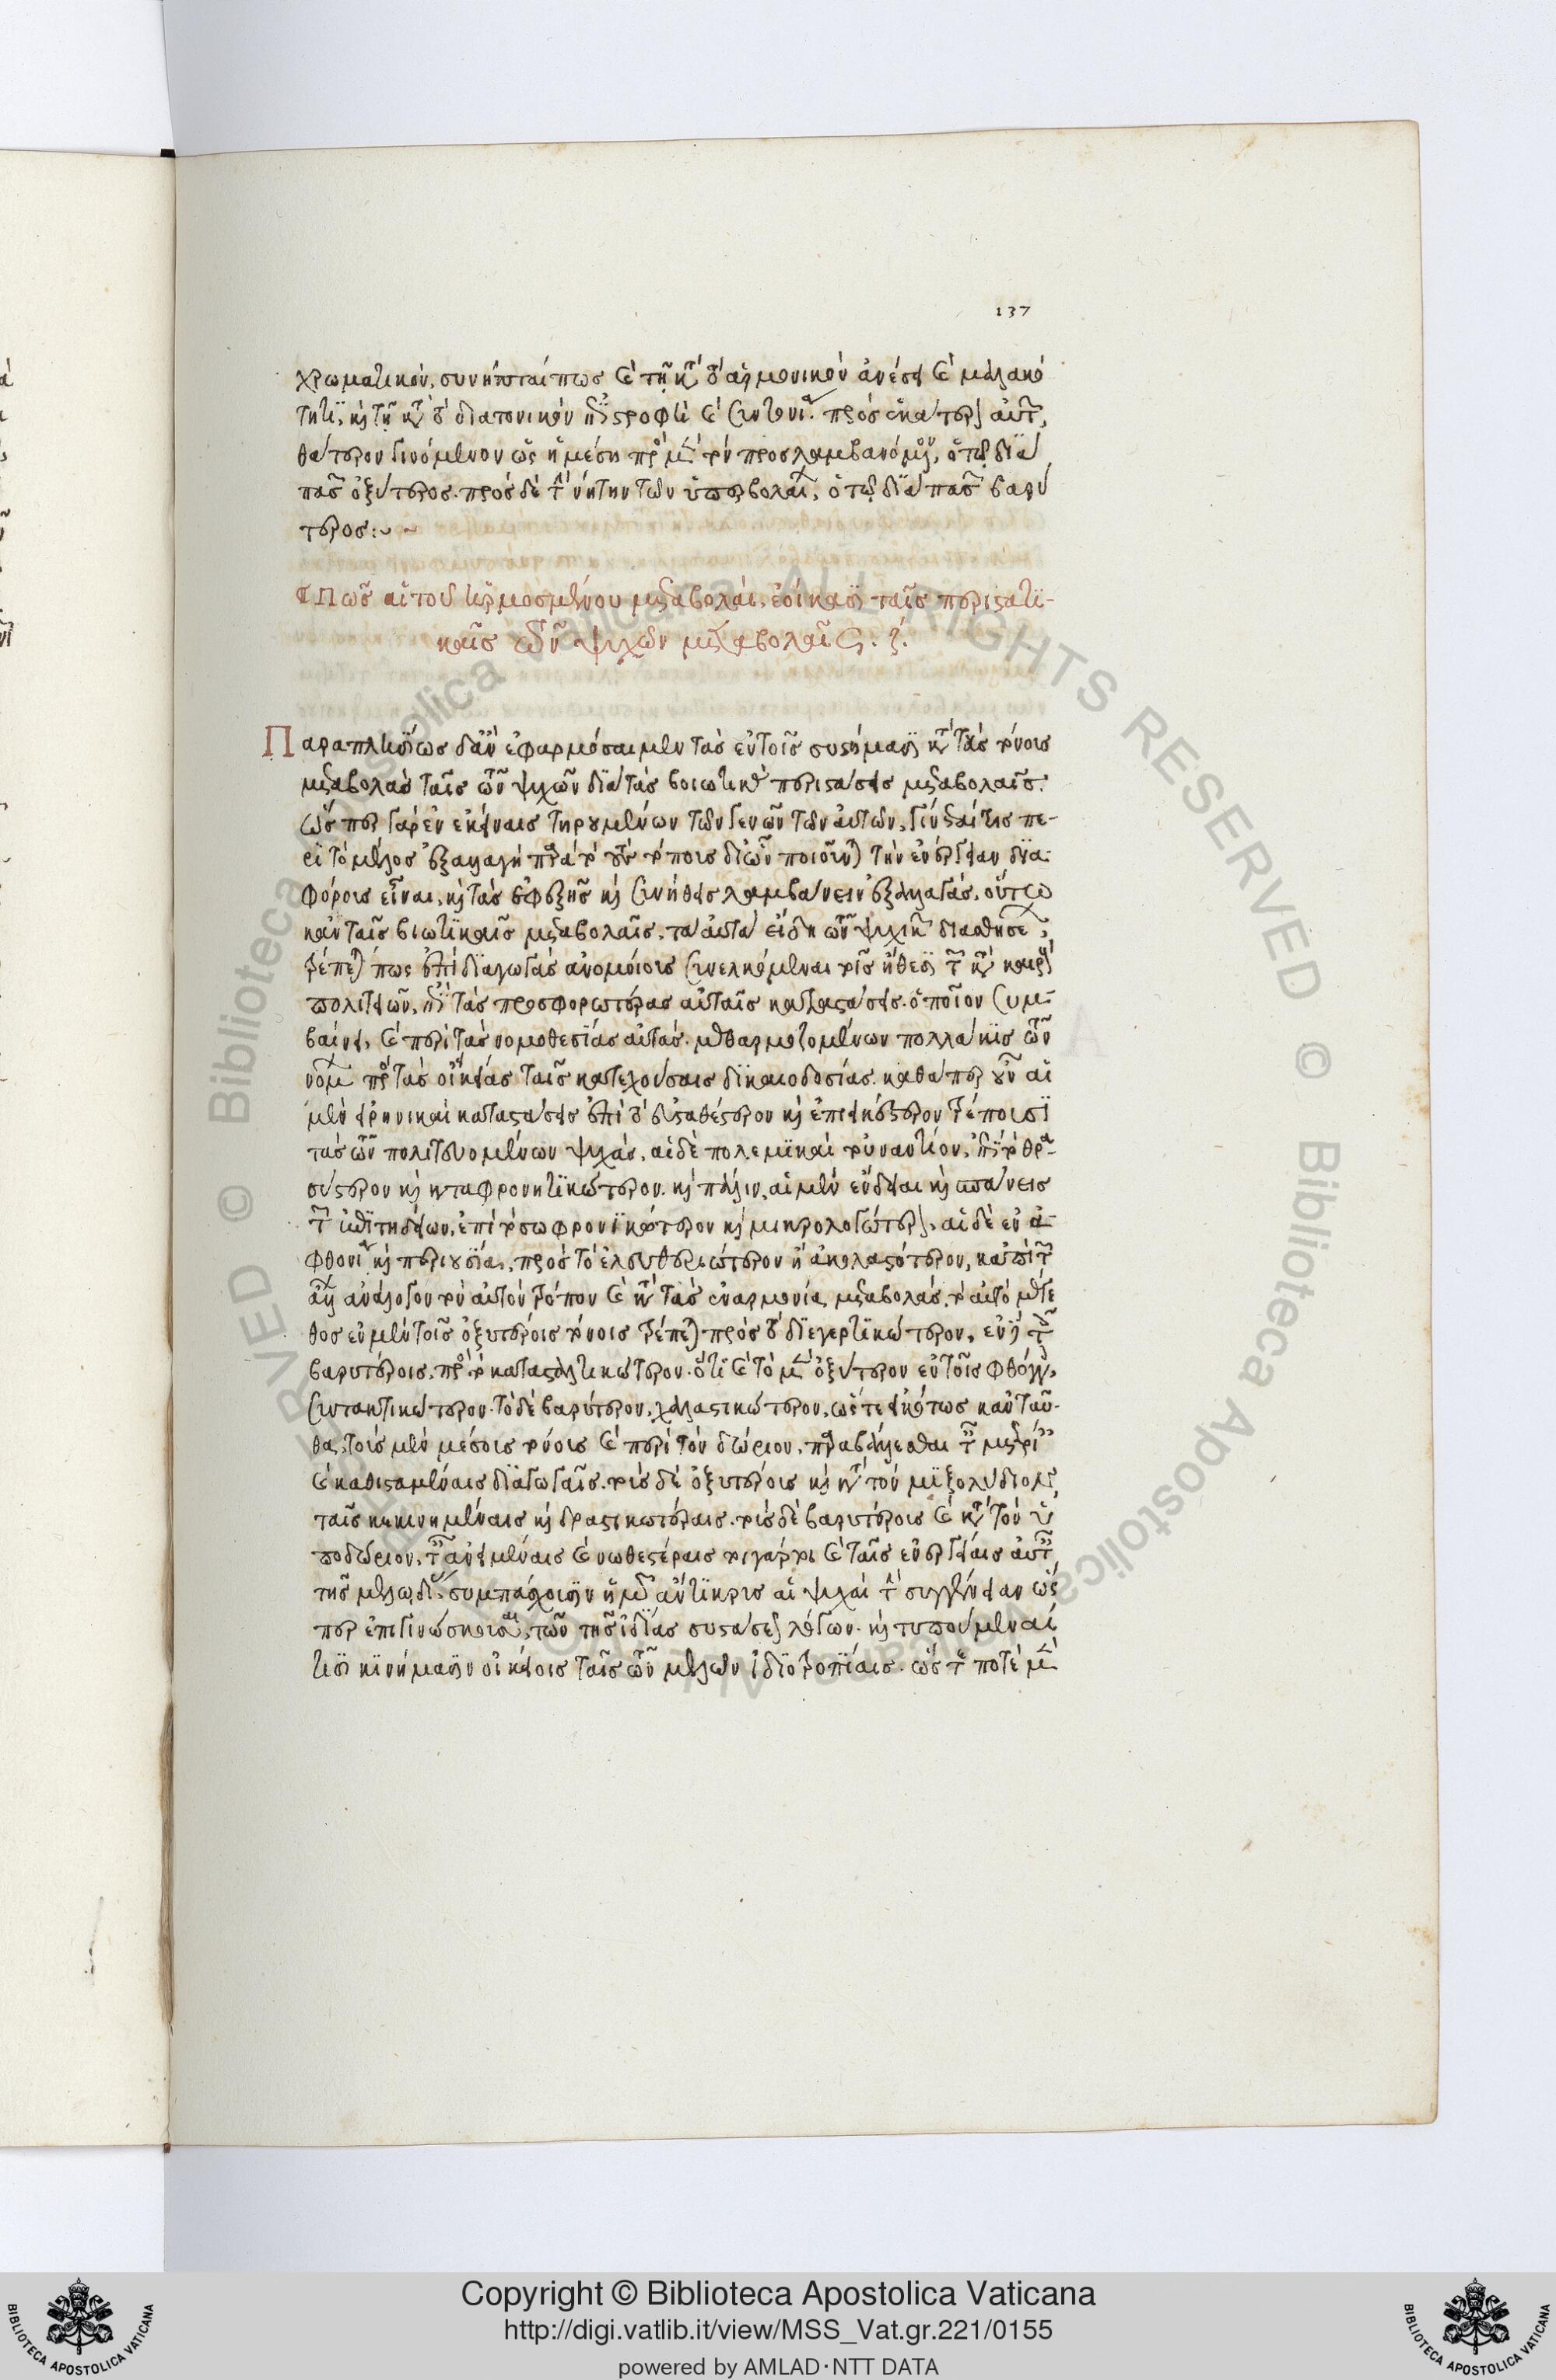 137
χρωματικόν, συνῆπταί πως καὶ τῇ κατὰ τὸ ἁρμονικὸν ἀνέσει καὶ μαλακό
τητι, καὶ τῇ κατὰ τὸ διατονικὸν ἐπιστροφῇ καὶ συντονίᾳ. πρὸς ἑκάτερον αὐτῶν,
θάτερον γινόμενον ὡς ἡ μέση πρὸς μὲν τὸν προσλαμβανόμενον, ὁ τῷ διὰ
πασῶν ὀξύτερος. πρὸς δὲ τὴν νήτην τῶν ὑπερβολαίων, ὁ τῷ διὰ πασῶν βαρύ
τερος:~ ~
Πῶς αἱ τοῦ ἡρμοσμένου μεταβολαὶ, ἐοίκασι ταῖς περιστατι-
καῖς τῶν ψυχῶν μεταβολαῖς. ζ.
Παραπλησίως δ' ἂν ἐφαρμόσαιμεν τὰς ἐν τοῖς συστήμασι κατὰ τοὺς τόνους
μεταβολὰς ταῖς τῶν ψυχῶν διὰ τὰς βιωτικὰς περιστάσεις μεταβολαῖς.
ὥσπερ γὰρ ἐν ἐκείναις τηρουμένων τῶν γενῶν τῶν αὐτῶν, γίνεταί τις πε-
ρὶ τὸ μέλος ἐξαλλαγὴ παρὰ τὸ τοὺς τόπους δι' ὧν ποιοῦνται τὴν ἐνέργειαν δια
φόρους εἶναι, καὶ τὰς ἐφεξῆς καὶ συνήθεις λαμβάνειν ἐξαλλαγάς, οὕτω
κἀν ταῖς βιωτικαῖς μεταβολαῖς, τὰ αὐτὰ εἴδη τῶν ψυχικῶν διαθέσεων,
τρέπεταί πως ἐπὶ διαγωγὰς ἀνομοίους συνελκόμεναι τοῖς ἤθεσι τῶν κατὰ καιρὸν
πολιτειῶν, ἐπὶ τὰς προσφορωτέρας αὐταῖς καταστάσεις. ὁποῖον συμ-
βαίνει, καὶ περὶ τὰς νομοθεσίας αὐτὰς. μεθαρμοζομένων πολλάκις τῶν
νόμων πρὸς τὰς οἰκείας ταῖς κατεχούσαις δικαιοδοσίας. καθάπερ οὖν αἱ
μὲν εἰρηνικαὶ καταστάσεις ἐπὶ τὸ εὐσταθέστερον καὶ ἐπιεικέστερον τρέπουσι
τὰς τῶν πολιτευομένων ψυχάς, αἱ δὲ πολεμικαὶ τοὐναντίον, ἐπὶ τὸ θρα-
σύτερον καὶ καταφρονητικώτερον. καὶ πάλιν, αἱ μὲν ἔνδειαι καὶ σπάνεις
τῶν ἐπιτηδείων, ἐπὶ τὸ σωφρονικώτερον καὶ μικρολογώτερον, αἱ δὲ εὐα-
φθονίαι καὶ περιουσίαι, πρὸς τὸ ἐλευθεριώτερον ἢ ἀκολαστότερον, κἀπὶ τῶν
ἄλλων ἀνάλογον τὸν αὐτὸν τρόπον καὶ κατὰ τὰς ἐναρμονίας μεταβολὰς, τὸ αὐτὸ μέγε
θος ἐν μὲν τοῖς ὀξυτέροις τόνοις τρέπεται πρὸς τὸ διεγερτικώτερον, ἐν δὲ τοῖς
βαρυτέροις, πρὸς τὸ κατασταλτικώτερον. ὅτι καὶ τὸ μὲν ὀξύτερον ἐν τοῖς φθόγγοις,
συντακτικώτερον. τὸ δὲ βαρύτερον, χαλαστικώτερον, ὥστε εἰκότως κἀνταῦ-
θα, τοὺς μὲν μέσους τόνους καὶ περὶ τὸν δώριον, παραβάλλεσθαι ταῖς μετρίαις
καὶ καθισταμέναις διαγωγαῖς. τοὺς δὲ ὀξυτέρους καὶ κατὰ τὸν μιξολύδιον,
ταῖς κεκινημέναις καὶ δραστικωτέραις. τοὺς δὲ βαρυτέρους καὶ κατὰ τὸν ὑ
ποδώριον, ταῖς ἀνειμέναις καὶ νωθεστέραις τοιγάρτοι καὶ ταῖς ἐνεργείαις αὐταῖς
τῆς μελῳδίας, συμπάσχουσιν ἡμῶν ἄντικρυς αἱ ψυχαὶ τὴν συγγένειαν ὥσ
περ ἐπιγινώσκουσαι, τῶν τῆς ἰδίας συστάσεως λόγων. καὶ τυπούμεναί
τισι κινήμασιν οἰκείοις ταῖς τῶν μελῶν ἰδιοτροπίαις. ὥστε ποτὲ μὲν
Copyright © Biblioteca Apostolica Vaticana
http://digi.vatlib.it/view/MSS_Vat.gr.221/0155
powered by AMLAD·NTT DATA